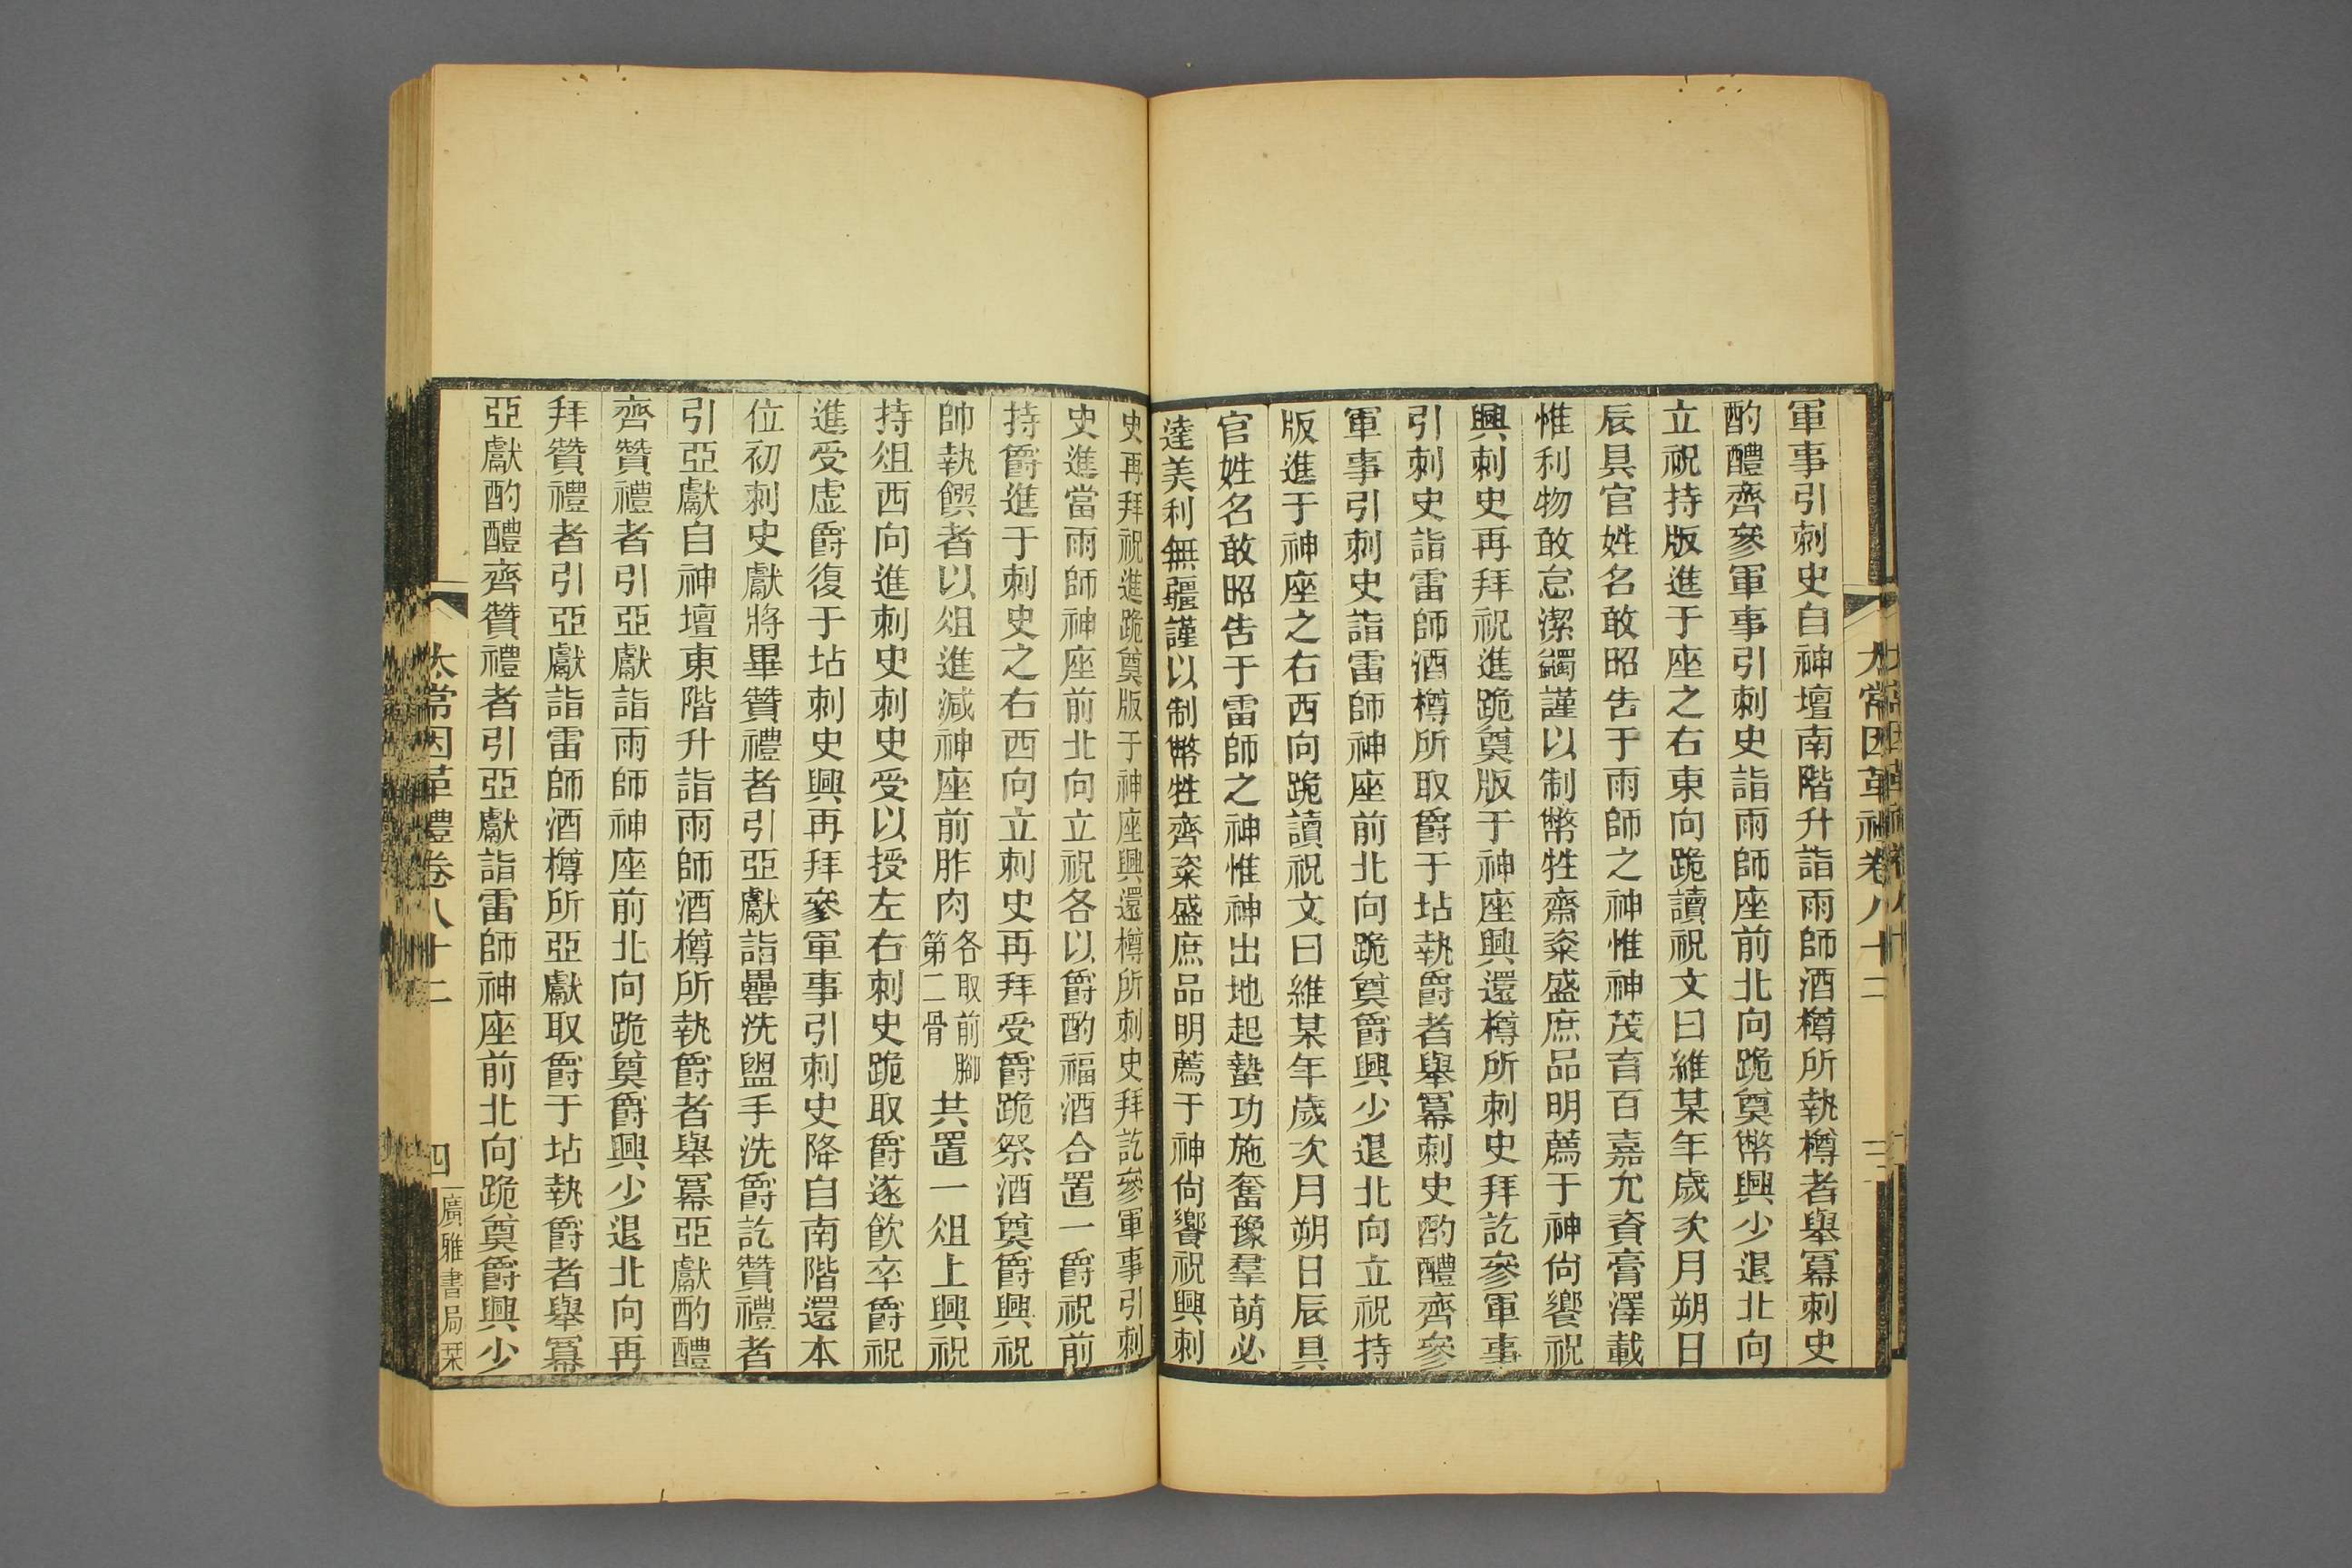 軍事引刺史自神壇南階升詣雨師酒樽所執樽者舉冪刺史
酌醴齊參軍事引刺史詣雨師座前北向跪奠幣興少退北向
立祝持版進于座之右東向跪讀祝文曰維某年歲次月朔日
辰具官姓名敢昭告于雨師之神惟神茂育百嘉允資膏澤載
惟利物敢怠潔蠲謹以制幣牲齋粢盛庶品明薦于神尙饗祝
興刺史再拜祝進跪奠版于神座興還樽所刺史拜訖參軍事
引刺史詣雷師酒樽所取爵于坫執爵者舉冪刺史酌醴齊參
軍事引刺史詣雷師神座前北向跪奠爵興少退北向立祝持
版進于神座之右西向跪讀祝文曰維某年歲次月朔日辰具
官姓名敢昭告于雷師之神惟神出地起蟄功施奮豫羣萌必
達美利無疆謹以制幣牲齊粢盛庶品明薦于神尙饗祝興刺
史再拜祝進跪奠版于神座興還樽所刺史拜訖參軍事引刺
史進當雨師神座前北向立祝各以爵酌福酒合置一爵祝前
持爵進于刺史之右西向立刺史再拜受爵跪祭酒奠爵興祝
帥執饌者以俎進減神座前胙肉各取前腳第二骨共置一俎上興祝
持俎西向進刺史刺史受以授左右刺史跪取爵遂飲卒爵祝
進受虛爵復于坫刺史興再拜參軍事引刺史降自南階還本
位初刺史獻將畢贊禮者引亞獻詣罍洗盥手洗爵訖贊禮者
引亞獻自神壇東階升詣雨師酒樽所執爵者舉冪亞獻酌醴
齊贊禮者引亞獻詣雨師神座前北向跪奠爵興少退北向再
拜贊禮者引亞獻詣雷師酒樽所亞獻取爵于坫執爵者舉冪
亞獻酌醴齊贊禮者引亞獻詣雷師神座前北向跪奠爵興少
太常因革禮卷八十二 四 廣雅書局栞